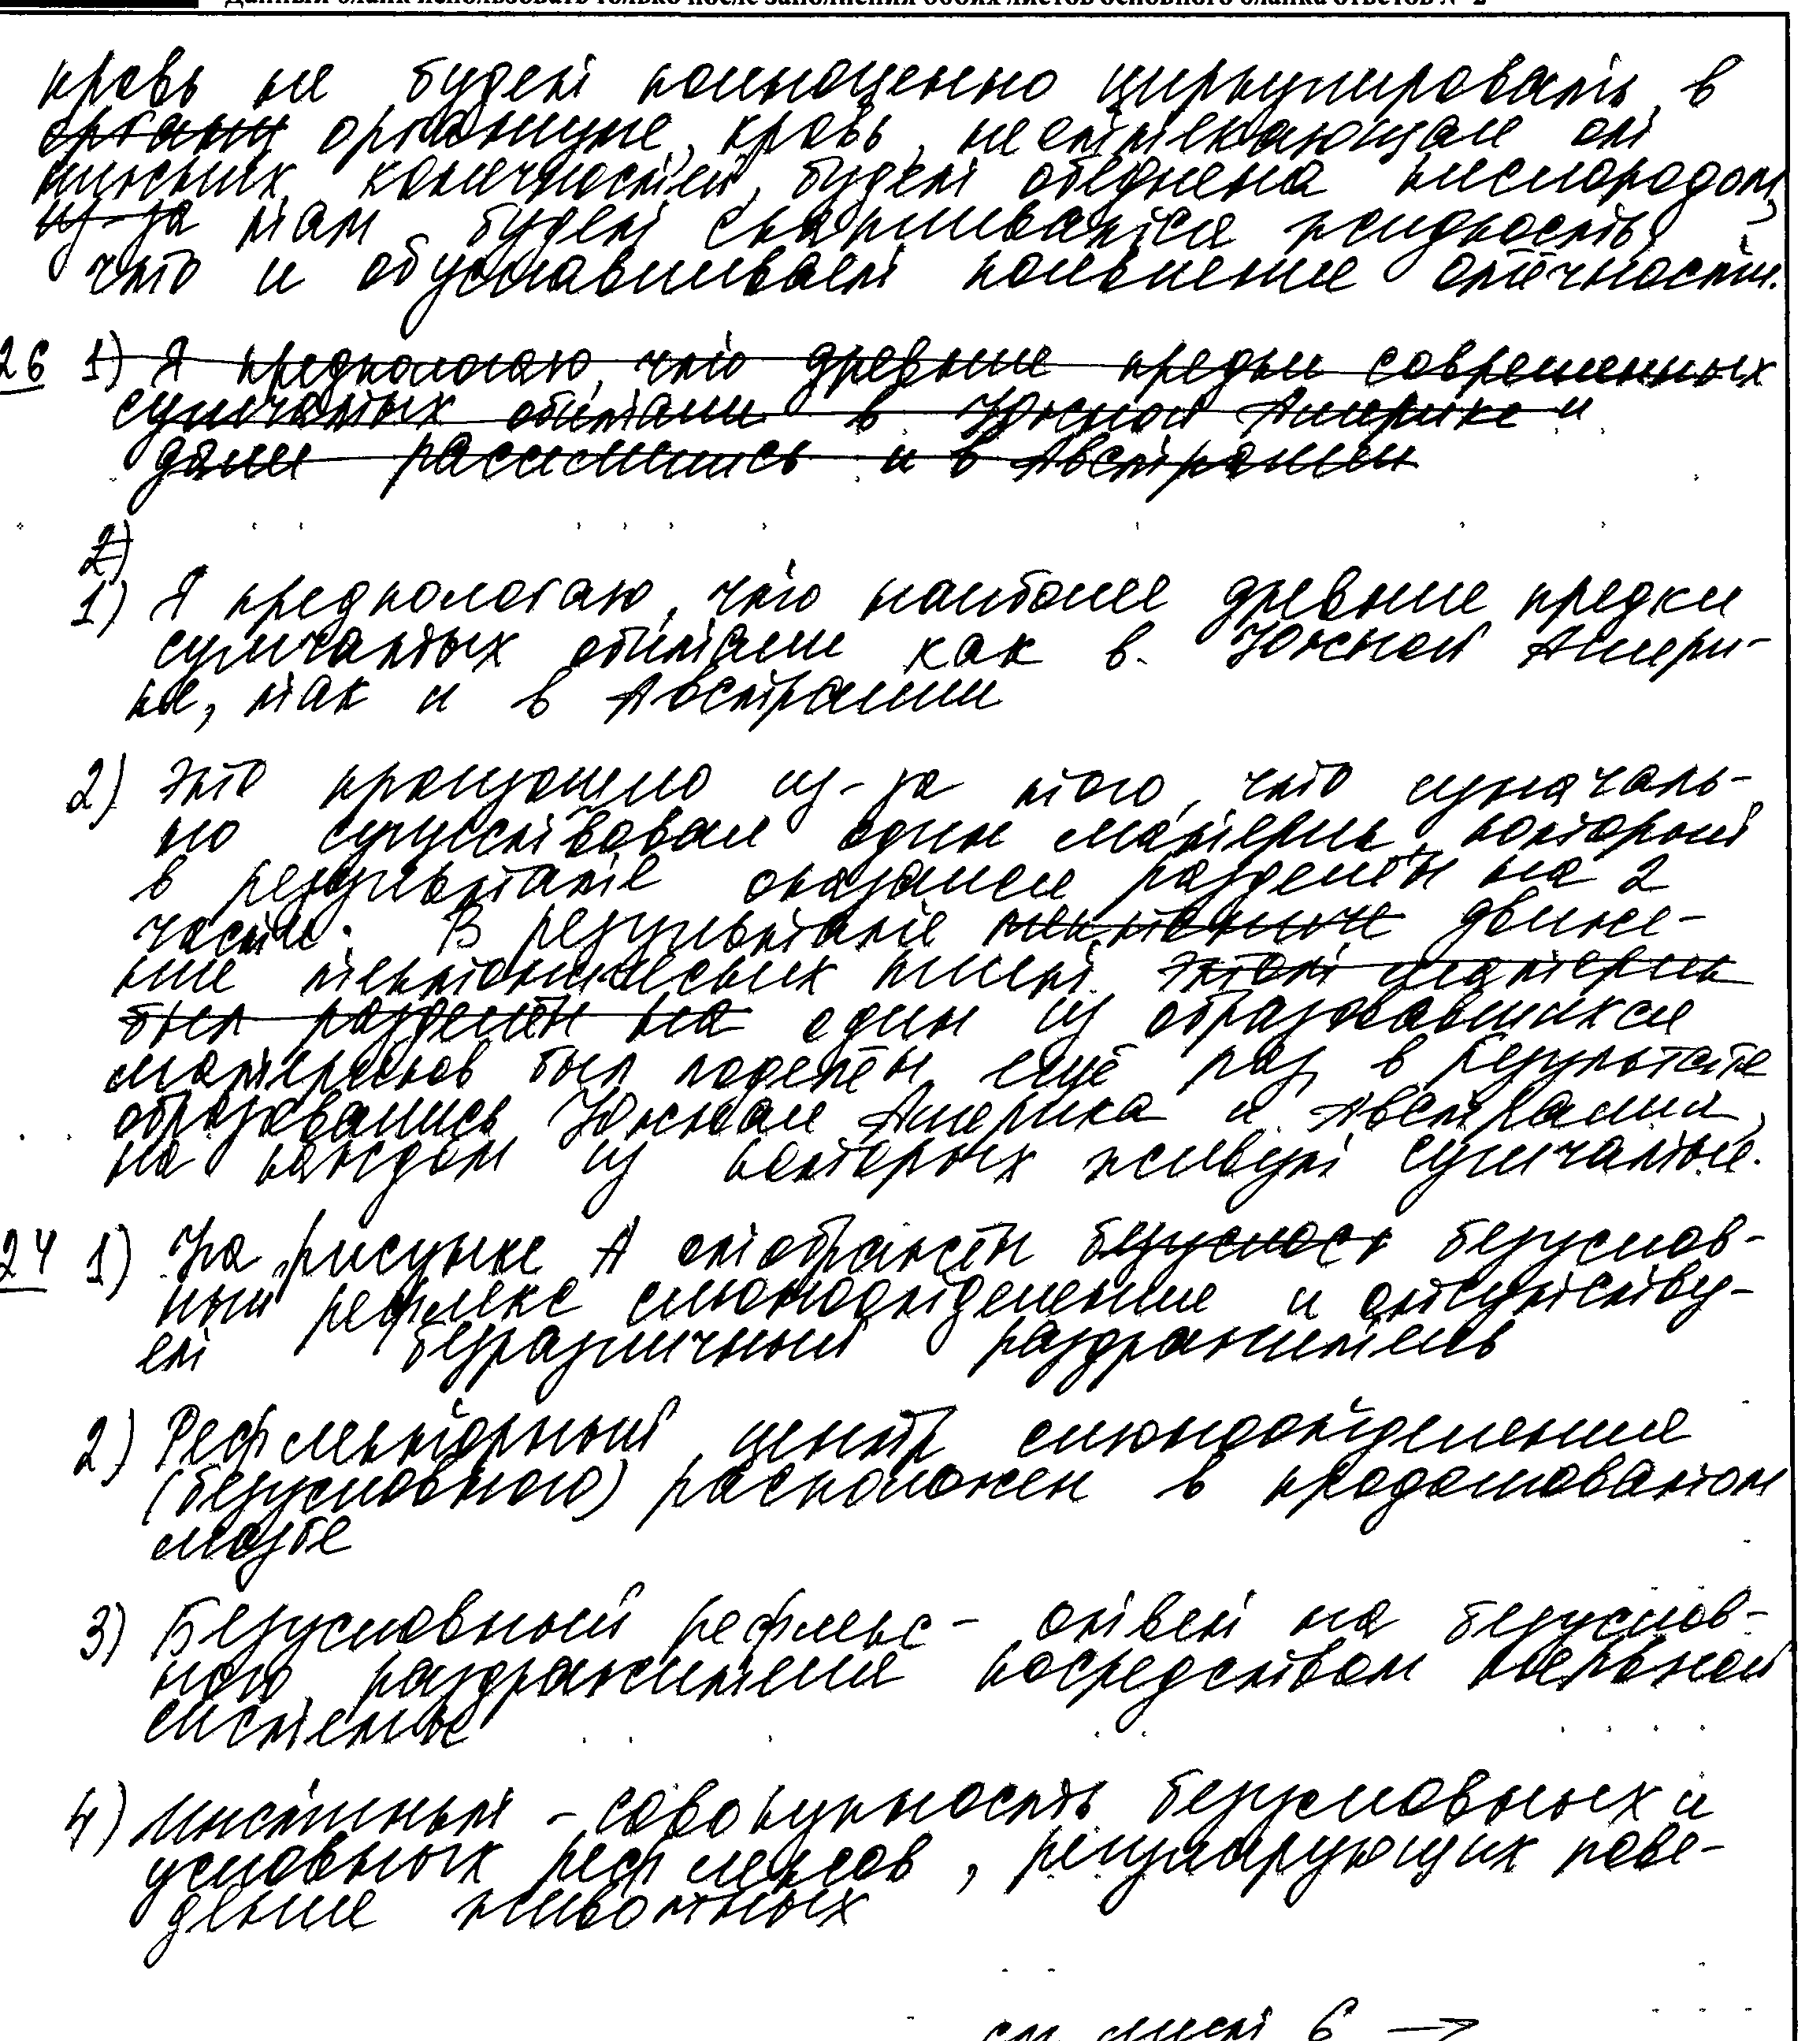 Данный бланк использовать только после заполнения обоих листов основного бланка ответов № 2
кровь не будет полноценно циркулировать в
органи организме, кровь, неоттекающая от
нижних конечностей, будет обеднена кислородом,
из-за там будет скапливаться жидкость,
что и обуславливает появление отёчности.
26 1) Я предпологаю, что древние предки современных
сумчатых обитали в Южной Америке и
далее расселились и в Австралии
2)
1) Я предпологаю, что наиболее древние предки
сумчатых обитали как в Южной Амери-
ке, так и в Австралии
2) Это произошло из-за того, что изначаль-
но существовал один материк, который
в результате оказался разделён на 2
части. В результате движе-
ние тектонических плит этот материк
был разделён на один из образовавшихся
материков был поделён ещё раз, в результате
образовались Южная Америка и Австралия,
на каждом из которых живут сумчатые.
24 1) На рисунке А отображён безуслосн безуслов-
ный рефлекс слюноотделение и отсутству-
ет безразличный раздражитель
2) Рефлекторный центр слюноотделения
(безусловного) расположен в продолговатом
мозге
3) Безусловный рефлекс - ответ на безуслов-
ного раздражителя посредством нервной
системы
4) Инстинкт - совокупность безусловных и
условных рефлексов, регулирующих пове-
дение животных
см. лист 6 →